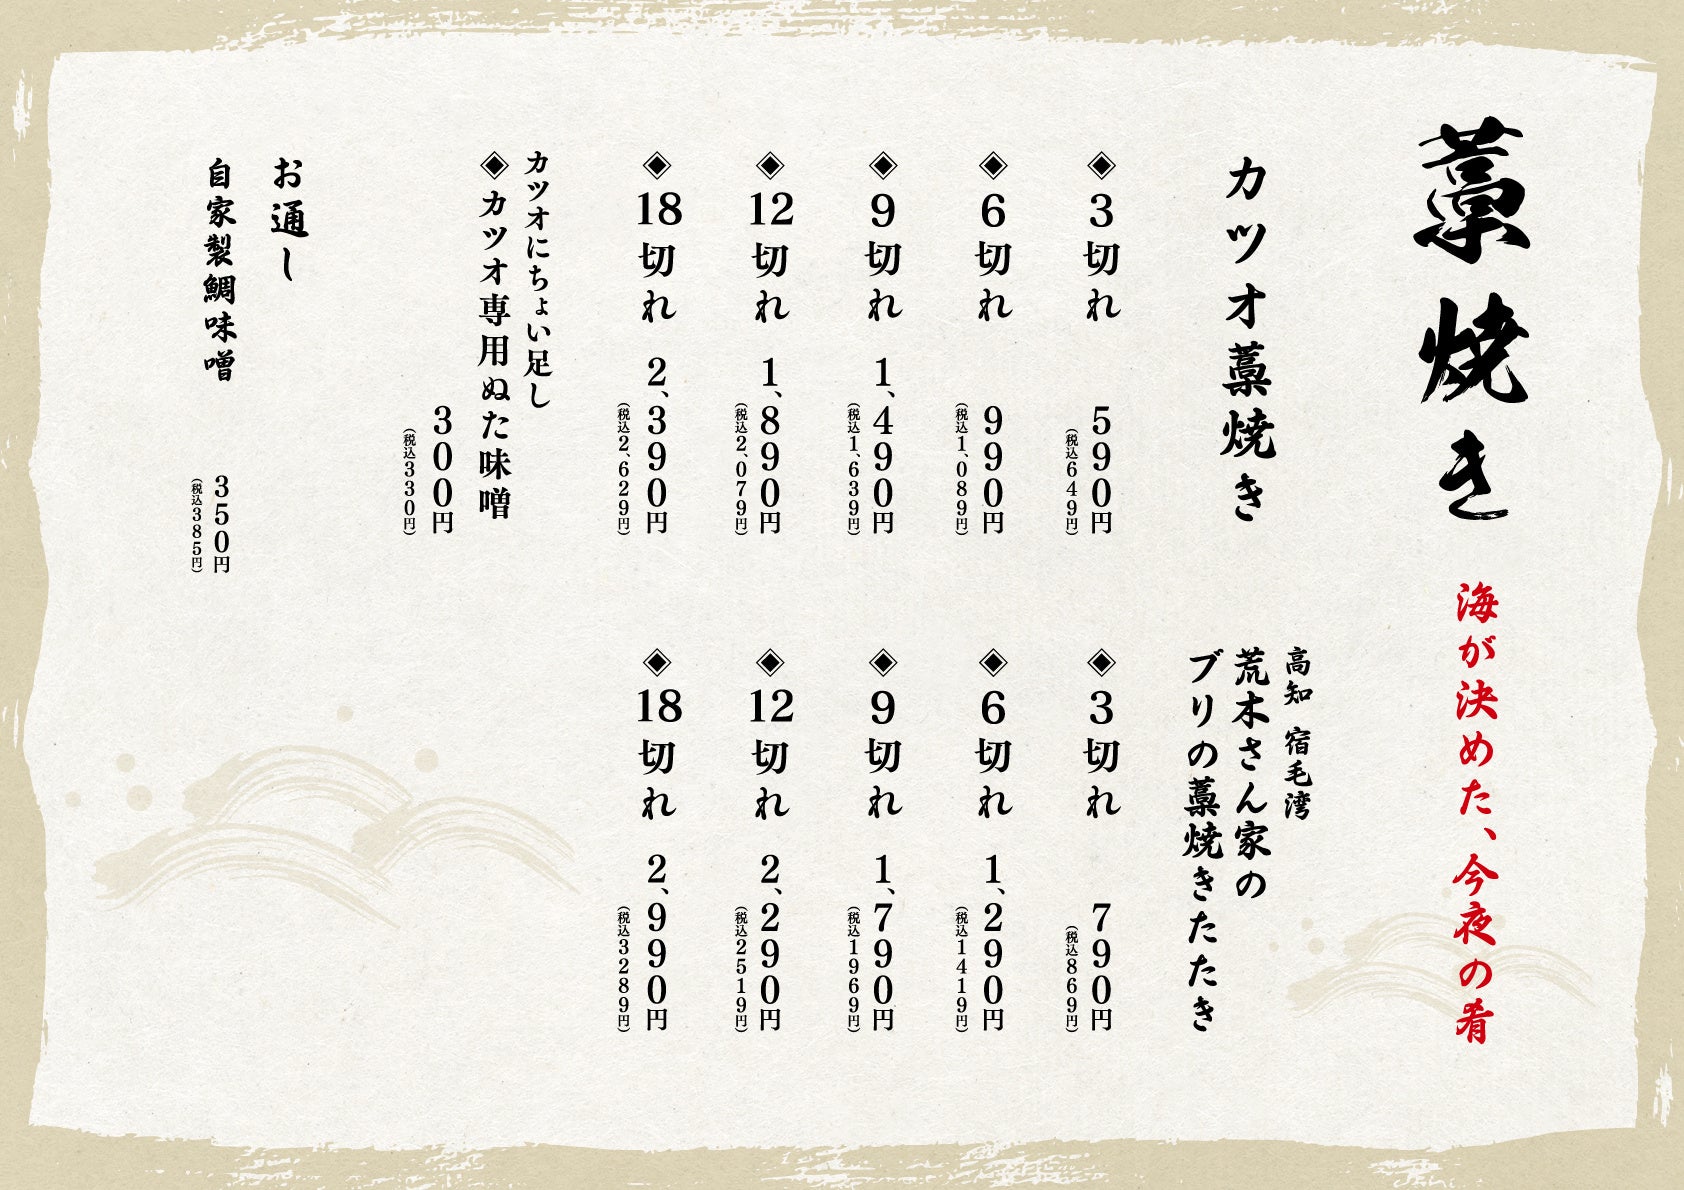 藁焼き
海が決めた、今夜の肴
カツオ藁焼き
◈3切れ 590円
(税込649円)
◈6切れ 990円
(税込1、089円)
◈9切れ 1、490円
(税込1、639円)
◈12切れ 1、890円
(税込2、079円)
◈18切れ 2、390円
(税込2、629円)
カツオにちょい足し
◈カツオ専用ぬた味噌
300円
(税込330円)
高知 宿毛湾
荒木さん家の
ブリの藁焼きたたき
◈3切れ 790円
(税込869円)
◈6切れ 1、290円
(税込1419円)
◈9切れ 1、790円
(税込1969円)
◈12切れ 2、290円
(税込2519円)
◈18切れ 2、990円
(税込3289円)
お通し
自家製鯛味噌 350円
(税込385円)